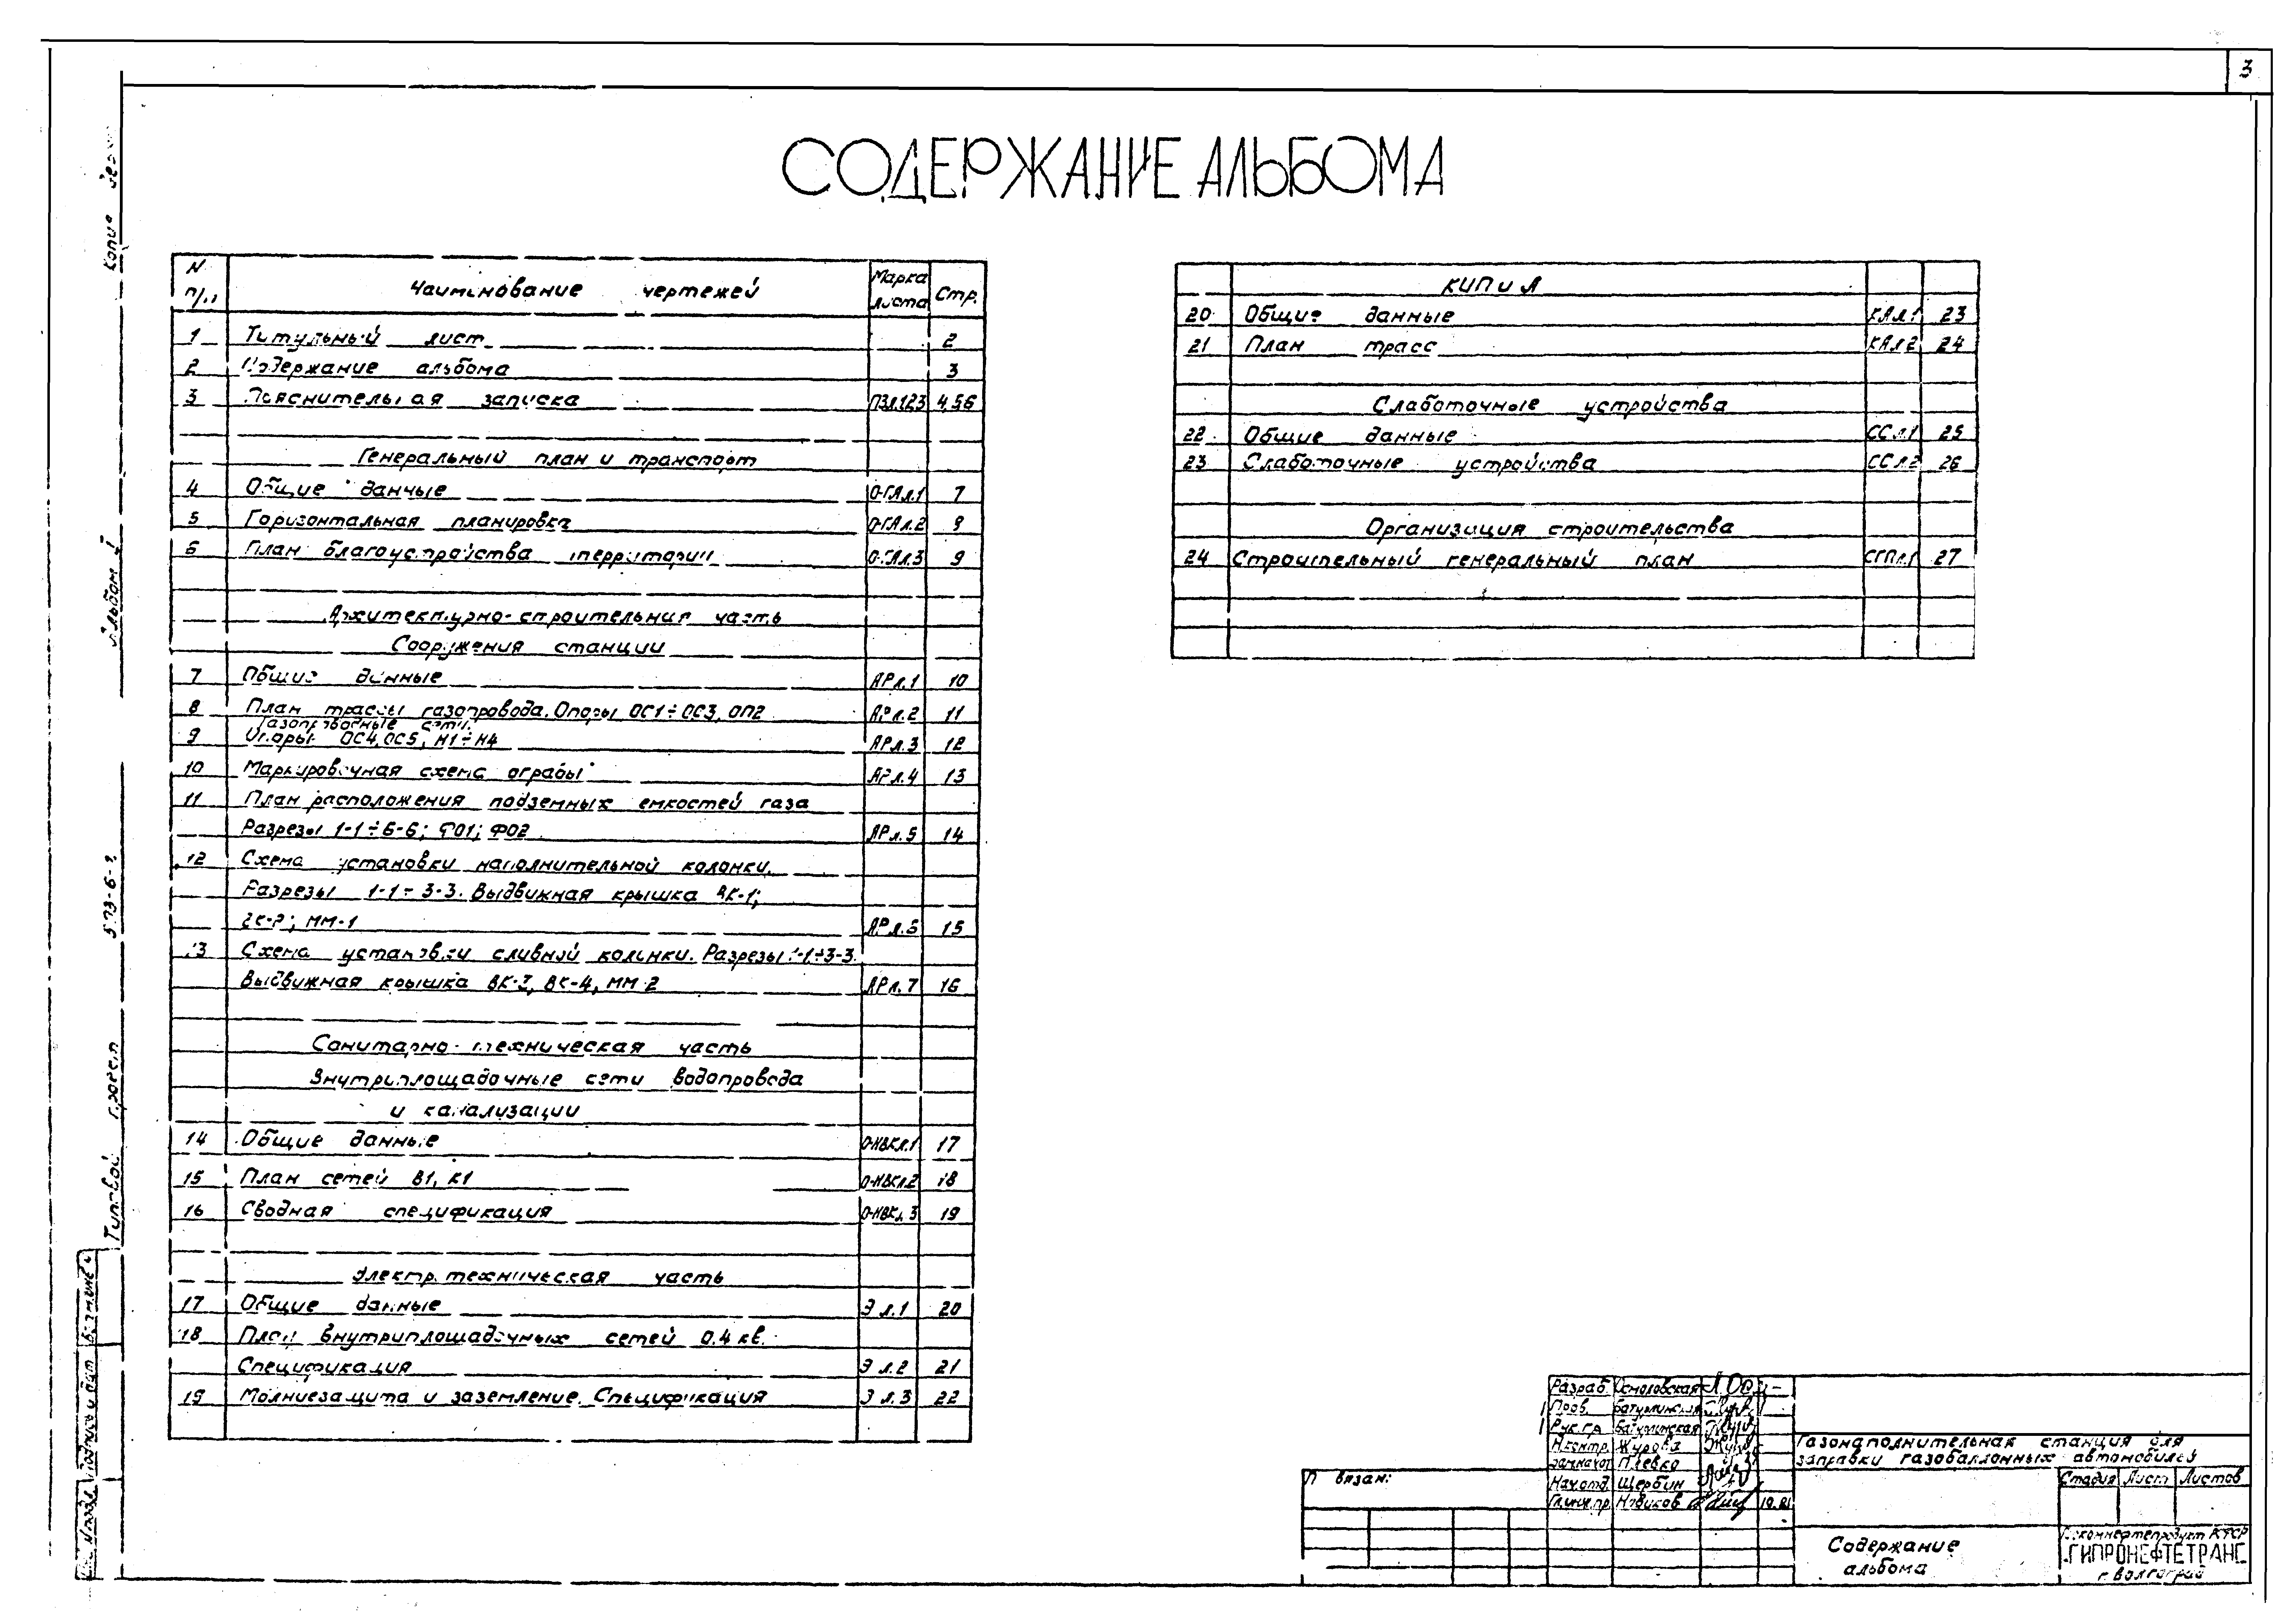 3
СОДЕРЖАНИЕ АЛЬБОМА
N п/п Наименование чертежей Марка листа Стр.
1 Титульный лист 2
2 Содержание альбома 3
3 Пояснительная записка ПЗл.1,2,3 4,5,6
Генеральный план и транспорт
4 Общие данные О-ГАл.1 7
5 Горизонтальная планировка О-ГАл.2 8
6 План благоустройства территории О-ГАл.3 9
Архитектурно-строительная часть
Сооружения станции
7 Общие данные АРл.1 10
8 План трассы газопровода. Опоры ОС1÷ОС3, ОП2 АРл.2 11
Газопроводные сети.
9 Опоры ОС4, ОС5, Н1÷Н4 АРл.3 12
10 Маркировочная схема ограды АРл.4 13
11 План расположения подземных емкостей газа
Разрезы 1-1÷6-6; ФО1; ФО2 АРл.5 14
12 Схема установки наполнительной колонки.
Разрезы 1-1÷3-3. Выдвижная крышка ВК-1;
ВК-2; ММ-1 АРл.6 15
13 Схема установки сливной колонки. Разрезы 1-1÷3-3.
Выдвижная крышка ВК-3, ВК-4, ММ-2 АРл.7 16
Санитарно-техническая часть
Внутриплощадочные сети водопровода
и канализации
14 Общие данные О-НВКл.1 17
15 План сетей В1, К1 О-НВКл.2 18
16 Сводная спецификация О-НВКл.3 19
Электротехническая часть
17 Общие данные Э л.1 20
18 План внутриплощадочных сетей 0.4 кв.
Спецификация Э л.2 21
19 Молниезащита и заземление. Спецификация Э л.3 22
КИП и А
20 Общие данные КАл.1 23
21 План трасс КАл.2 24
Слаботочные устройства
22 Общие данные ССл.1 25
23 Слаботочные устройства ССл.2 26
Организация строительства
24 Строительный генеральный план СГПл.1 27
Копия
Альбом I
Типовой проект 573-6-
Подпись и дата
Разраб. Осмоловская
Пров. Батуминская
Рук.гр. Батуминская
Н.контр. Журова
Зам.нач.от. Плевко
Нач.отд. Щербин
Гл.инж.пр. Новиков
Привязан:
Газонаполнительная станция для
заправки газобаллонных автомобилей
Стадия Лист Листов
Содержание
альбома
Госкомнефтепродукт РСФСР
ГИПРОНЕФТЕТРАНС
г. Волгоград